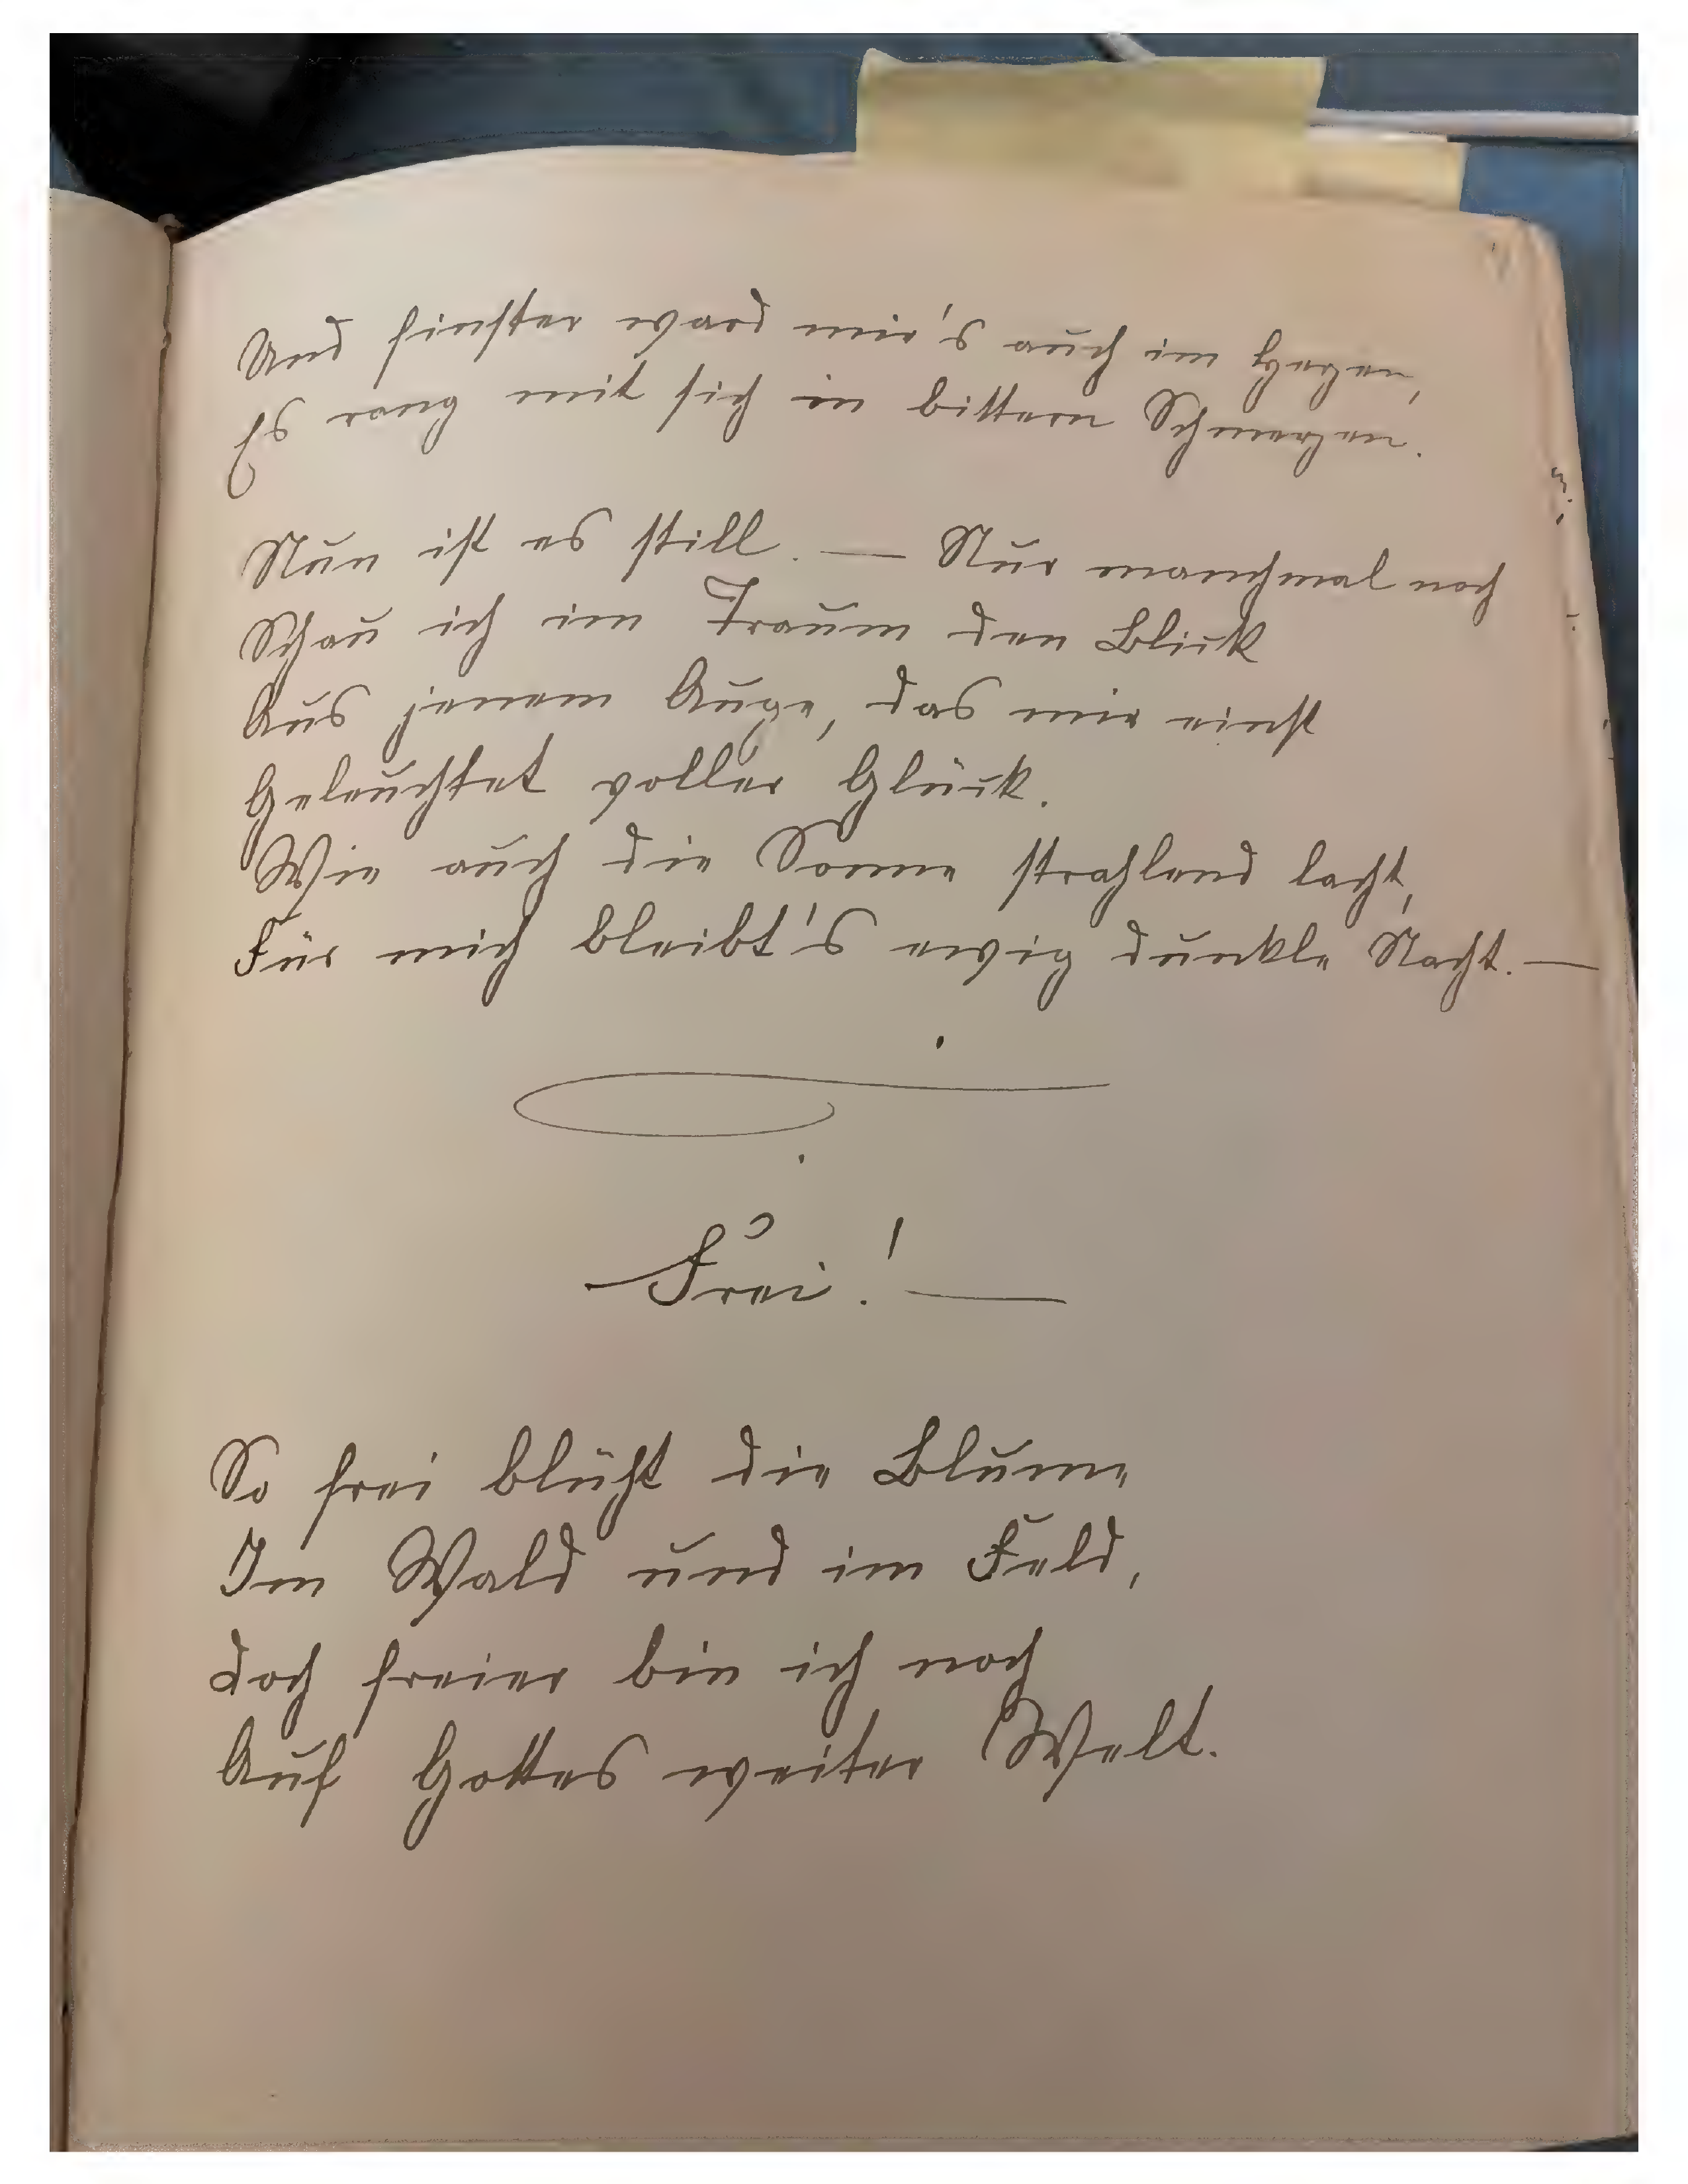 Und finster ward mir's auch im Herzen,
Es rang mit sich in bittern Schmerzen.
Nun ist es still. — Nur manchmal noch
Schau ich im Traum den Blick
Aus jenem Auge, das mir einst
Geleuchtet voller Glück.
Wie auch die Sonne strahlend lacht,
Für mich bleibt's ewig dunkle Nacht. —
Frei! —
So frei blüht die Blume
Im Wald und im Feld,
Doch freier bin ich noch
Auf Gottes weiter Welt.